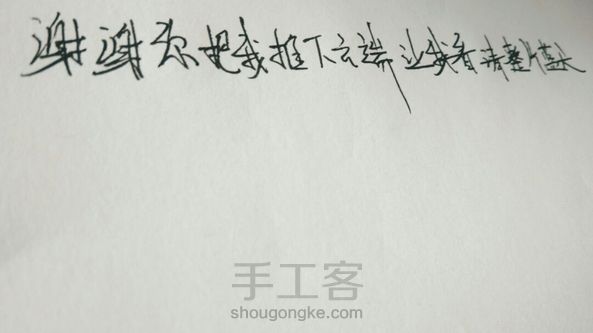 谢谢你把我推下云端 让我看清整片蓝天
手工客
shougongke.com